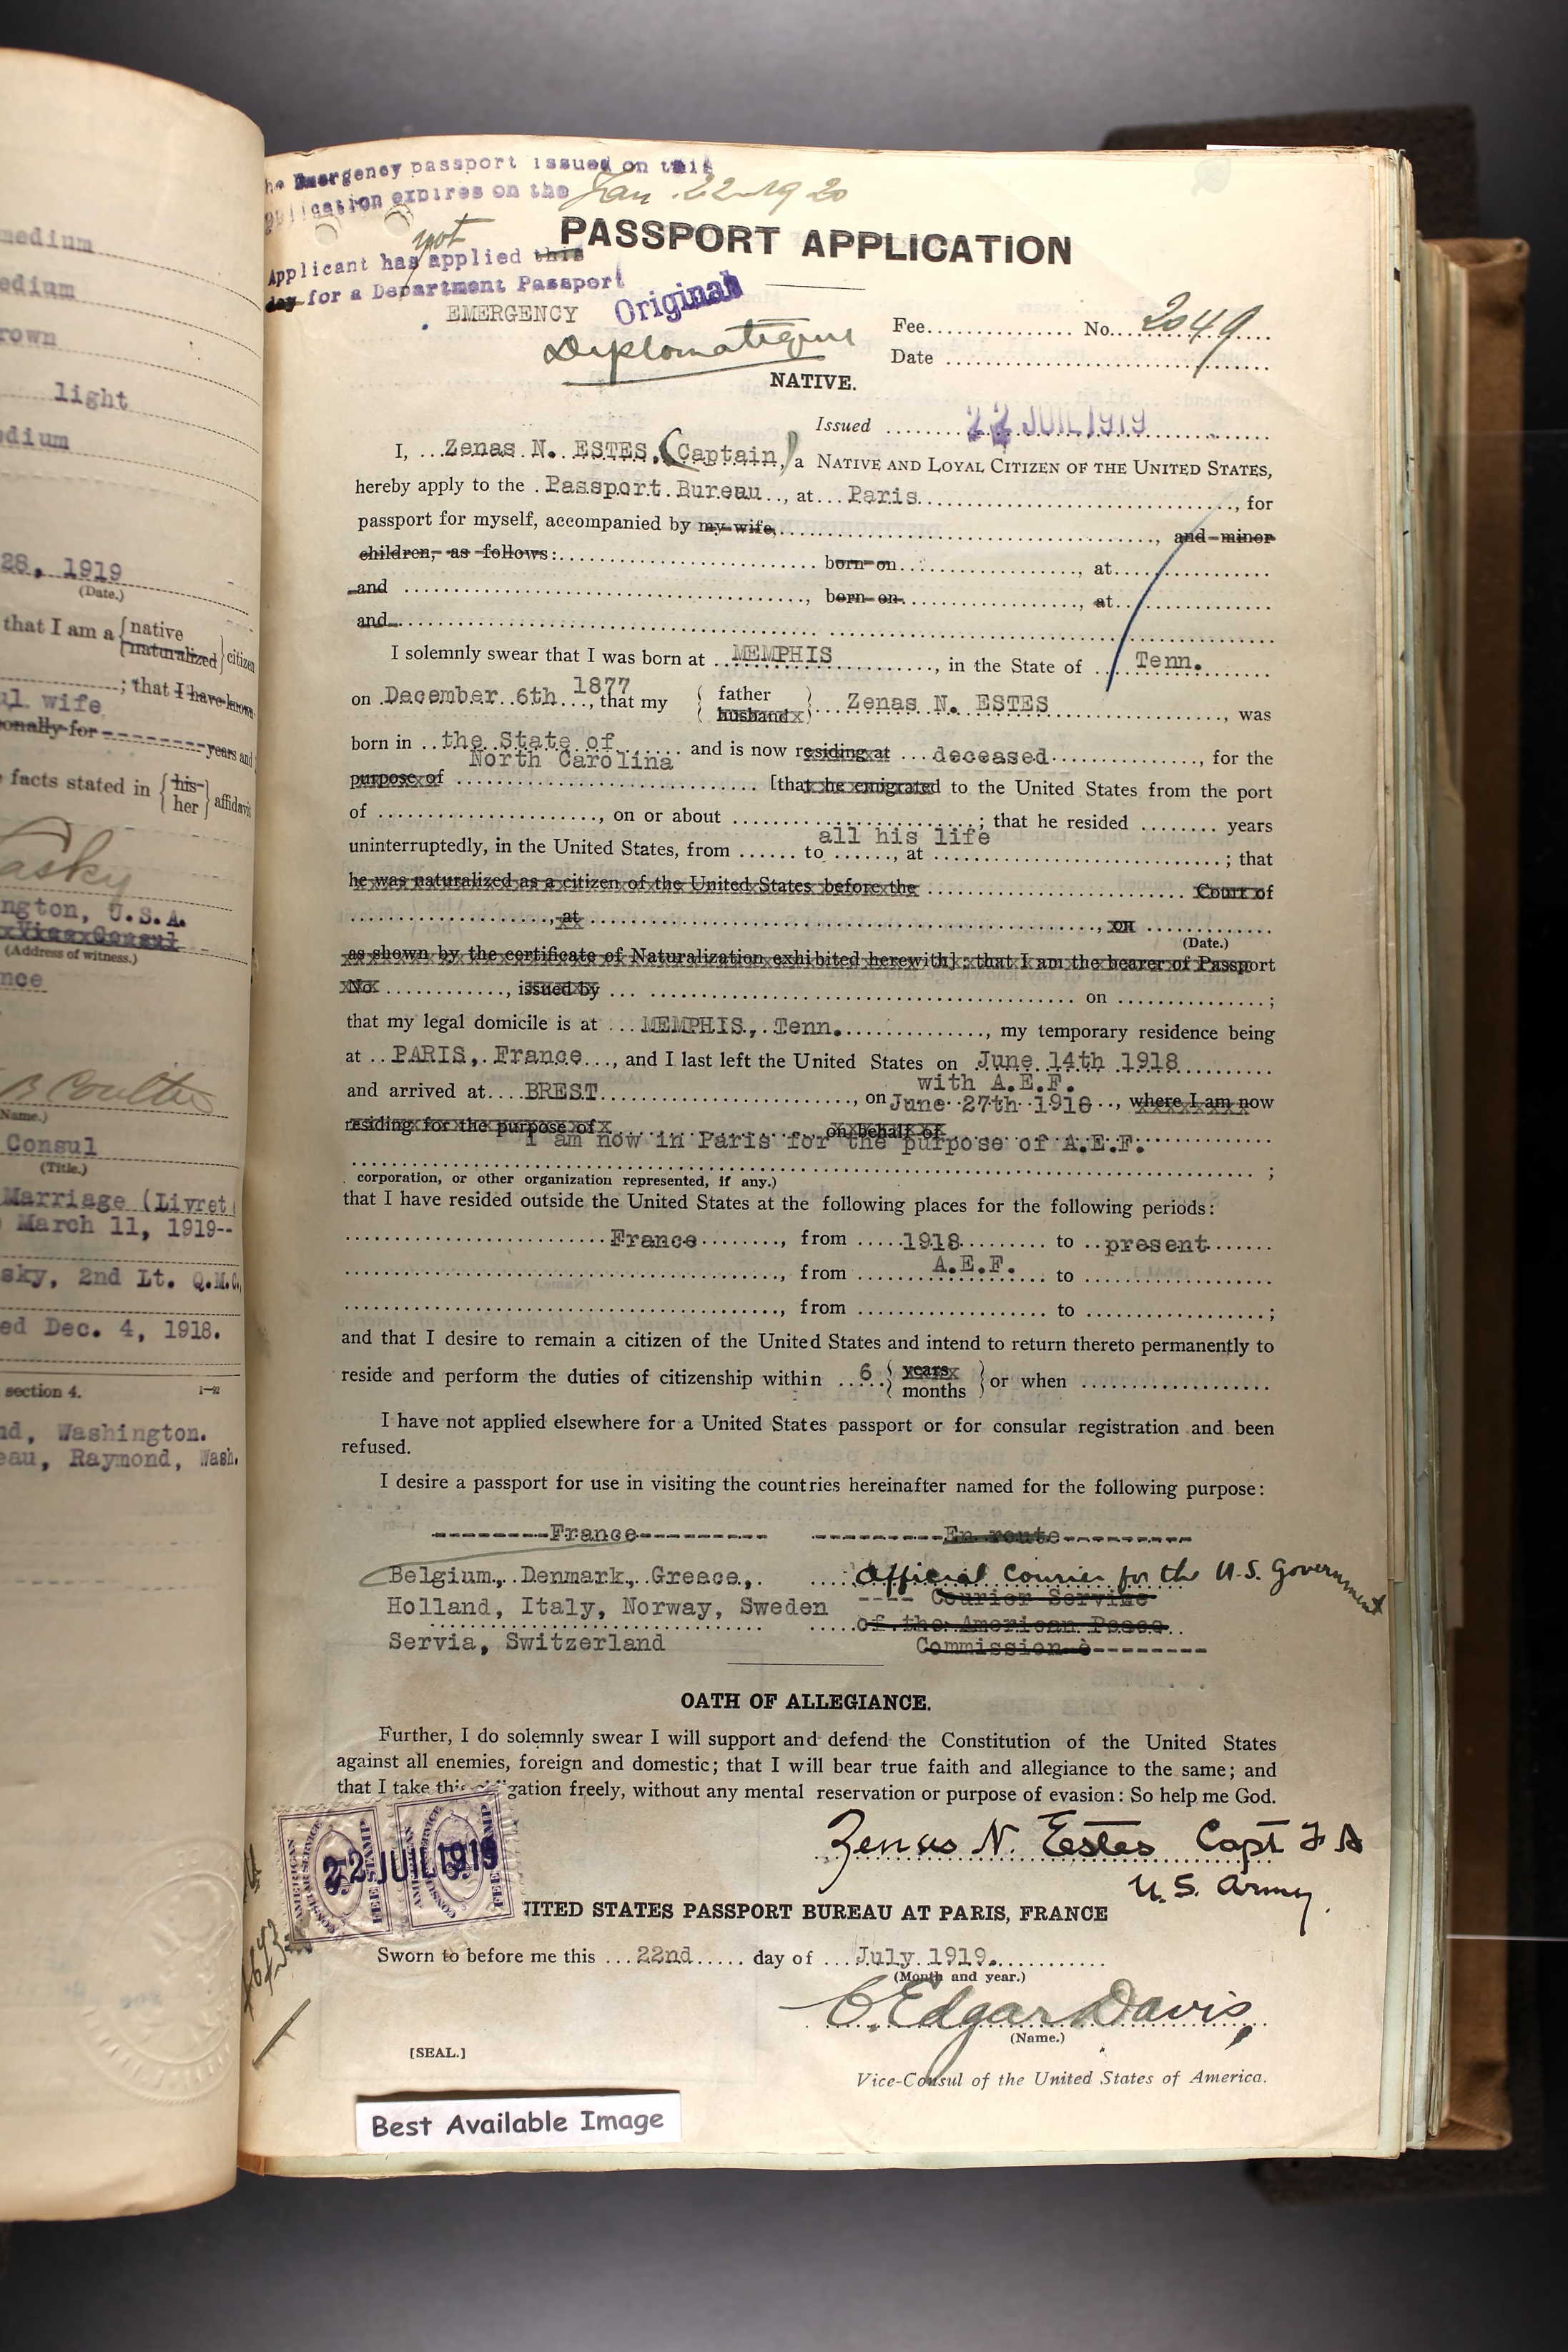 medium
edium
rown
light
edium
28, 1919
(Date.)
that I am a { native
naturalized } citizen
; that I have known
ul wife
onally for years and
facts stated in { his
her } affidavit
asky
ngton, U.S.A.
x Vice x Consul
(Address of witness.)
nce
B Coulter
Name.)
Consul
(Title.)
Marriage (Livret
March 11, 1919--
sky, 2nd Lt. Q.M.C.
ed Dec. 4, 1918.
section 4.
nd, Washington.
eau, Raymond, Wash.
he Emergency passport issued on this
pplication expires on the Jan. 22 1920
not
Applicant has applied this
day for a Department Passport
PASSPORT APPLICATION
EMERGENCY Original
Diplomatique
Fee............... No. 2049
Date ...............
NATIVE.
Issued 22 JUIL 1919
I, Zenas N. ESTES, (Captain), a NATIVE AND LOYAL CITIZEN OF THE UNITED STATES,
hereby apply to the Passport Bureau, at Paris, for
passport for myself, accompanied by my wife, and minor
children, as follows: born on, at
and, born on, at
and
I solemnly swear that I was born at MEMPHIS, in the State of Tenn.
on December 6th 1877, that my { father
husband } Zenas N. ESTES, was
born in the State of and is now residing at deceased, for the
North Carolina
purpose of [that he emigrated to the United States from the port
of, on or about ; that he resided years
all his life
uninterruptedly, in the United States, from to, at ; that
he was naturalized as a citizen of the United States before the Court of
, at, on
(Date.)
as shown by the certificate of Naturalization exhibited herewith]; that I am the bearer of Passport
No, issued by on ;
that my legal domicile is at MEMPHIS, Tenn., my temporary residence being
at PARIS, France, and I last left the United States on June 14th 1918
with A.E.F.
and arrived at BREST, on June 27th 1918, where I am now
residing for the purpose of on behalf of
I am now in Paris for the purpose of A.E.F.
;
corporation, or other organization represented, if any.)
that I have resided outside the United States at the following places for the following periods:
France, from 1918 to present
A.E.F.
, from to
, from to ;
and that I desire to remain a citizen of the United States and intend to return thereto permanently to
reside and perform the duties of citizenship within 6 { years
months } or when
I have not applied elsewhere for a United States passport or for consular registration and been
refused.
I desire a passport for use in visiting the countries hereinafter named for the following purpose:
--------France---------- ---------En route---------
Belgium, Denmark, Greece, Official Courier for the U.S. Government
Holland, Italy, Norway, Sweden ---- Courier Service
of the American Peace
Servia, Switzerland Commission è--------
OATH OF ALLEGIANCE.
Further, I do solemnly swear I will support and defend the Constitution of the United States
against all enemies, foreign and domestic; that I will bear true faith and allegiance to the same; and
that I take this obligation freely, without any mental reservation or purpose of evasion: So help me God.
AMERICAN CONSULAR SERVICE FEE STAMP
22 JUIL 1919
Zenas N. Estes Capt F A
U.S. Army.
UNITED STATES PASSPORT BUREAU AT PARIS, FRANCE
Sworn to before me this 22nd day of July 1919.
(Month and year.)
C. Edgar Davis,
(Name.)
[SEAL.]
Vice-Consul of the United States of America.
Best Available Image